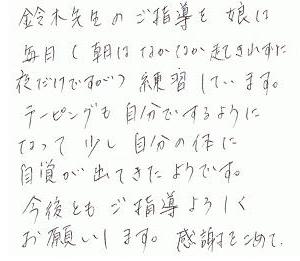 鈴木先生のご指導を 娘は
毎日(朝はなかなか起き出ずに
夜だけですが) 練習しています。
テーピングも自分でするように
なって 少し自分の体に
自覚が出てきたようです。
今後とも ご指導よろしく
お願いします。感謝をこめて、